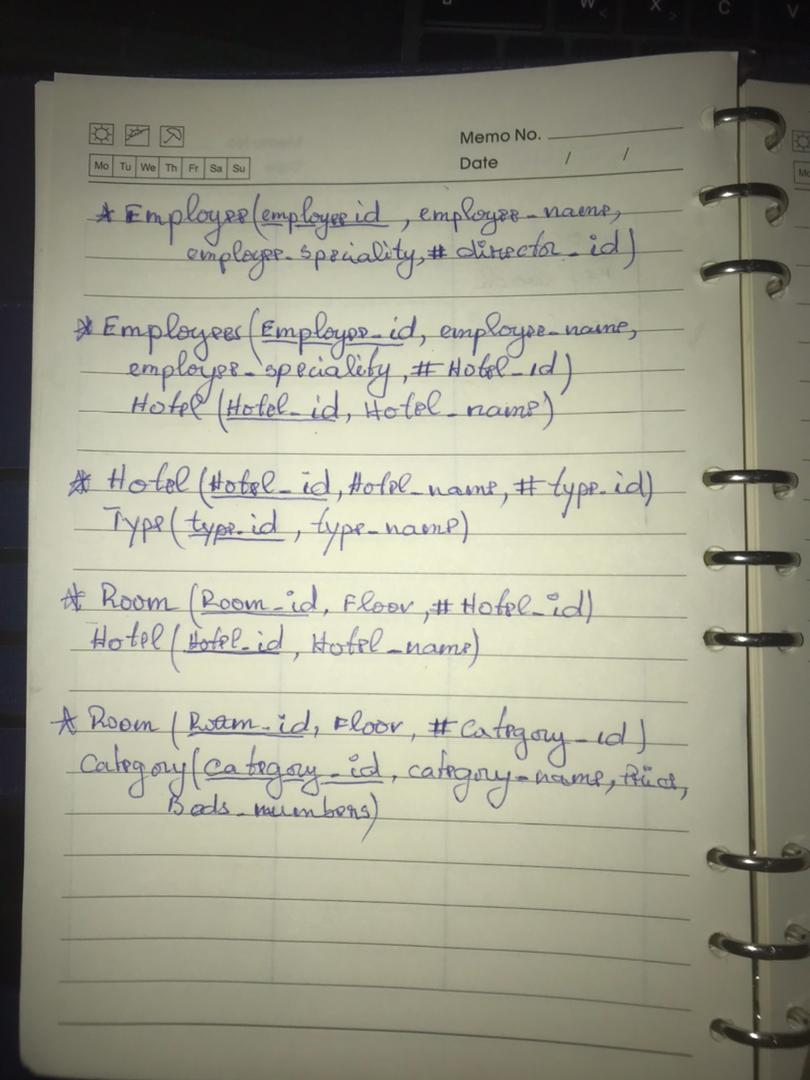 Memo No.
Date / /
Mo Tu We Th Fr Sa Su
* Employee(employee id, employee-name,
employee-speciality, # director-id)
* Employees (Employee-id, employee-name,
employee-speciality, # Hotel-id)
Hotel (Hotel-id, Hotel-name)
* Hotel (Hotel-id, Hotel-name, # type-id)
Type (type-id, type-name)
* Room (Room-id, Floor, # Hotel-id)
Hotel (Hotel-id, Hotel-name)
* Room (Room-id, Floor, # Category-id)
Category (category-id, category-name, Price,
Beds-numbers)
W X C V